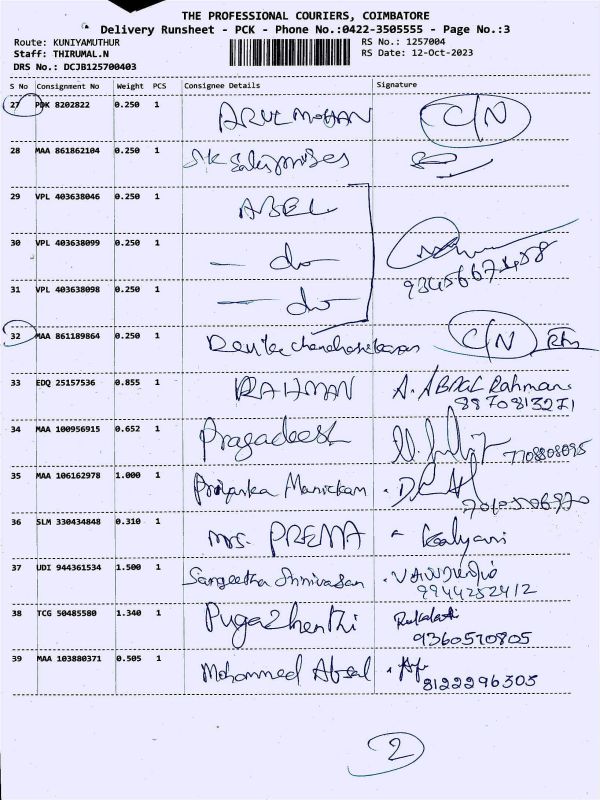 THE PROFESSIONAL COURIERS, COIMBATORE
Delivery Runsheet - PCK - Phone No.:0422-3505555 - Page No.:3
Route: KUNIYAMUTHUR RS No.: 1257004
Staff: THIRUMAL.N RS Date: 12-Oct-2023
DRS No.: DCJB125700403
S No Consignment No Weight PCS Consignee Details Signature
27 PDK 8202822 0.250 1 ARUL MOHAN C/N
28 MAA 861862104 0.250 1 SK
29 VPL 403638046 0.250 1 ABEL
30 VPL 403638099 0.250 1 — do —
31 VPL 403638098 0.250 1 — do —
32 MAA 861189864 0.250 1 C/N
33 EDQ 25157536 0.855 1 RAHMAN A. ABDUL Rahman
8870813271
34 MAA 100956915 0.652 1 Pragadeesh
7708808095
35 MAA 106162978 1.000 1 Priyanka Manickam
36 SLM 330434848 0.310 1 Mrs. PREMA Kalyani
37 UDI 944361534 1.500 1 Sangeetha Shrinivasan
9944252412
38 TCG 50485580 1.340 1 Pugazhenthi
9360570805
39 MAA 103880371 0.505 1 Mohammed Absal
8122296303
2